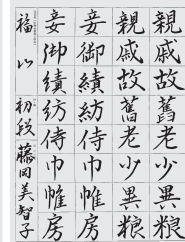 親戚故舊老少異粮
親戚故舊老少異粮
妾御績紡侍巾帷房
妾御績紡侍巾帷房
福山 初段 藤岡美智子